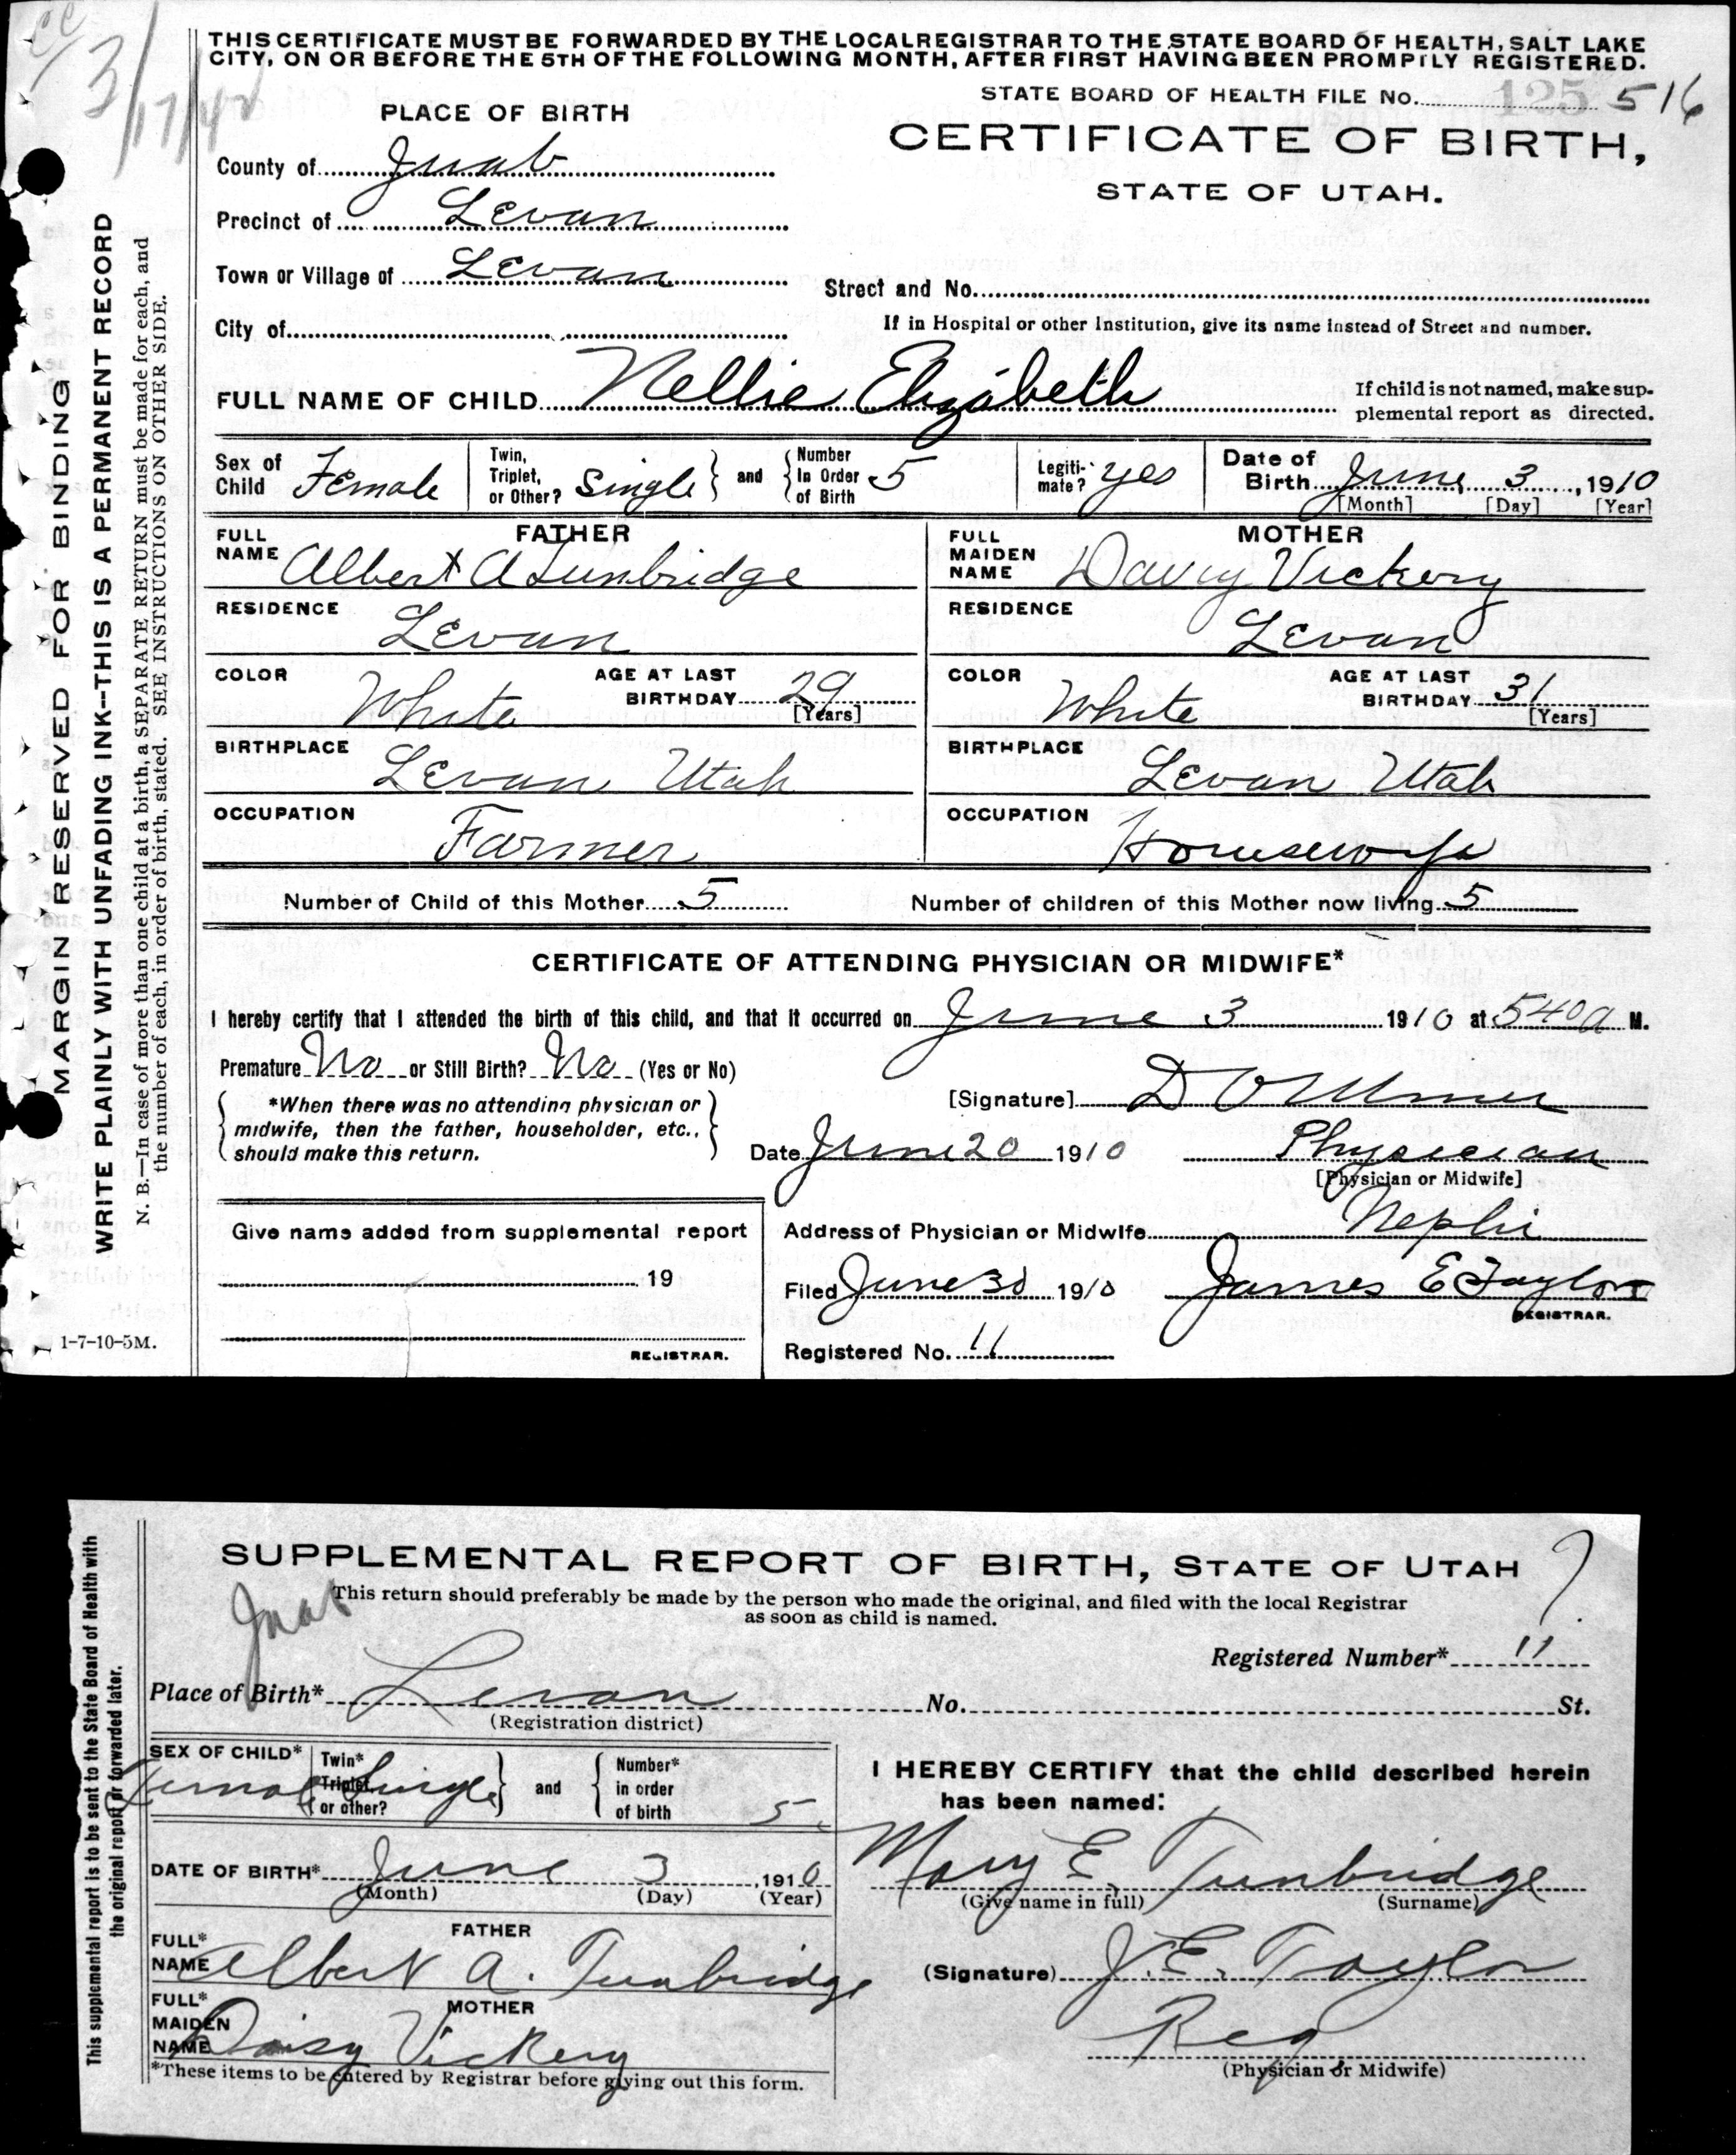 CC
3/17/42
THIS CERTIFICATE MUST BE FORWARDED BY THE LOCAL REGISTRAR TO THE STATE BOARD OF HEALTH, SALT LAKE
CITY, ON OR BEFORE THE 5TH OF THE FOLLOWING MONTH, AFTER FIRST HAVING BEEN PROMPTLY REGISTERED.
STATE BOARD OF HEALTH FILE No. 125 516
PLACE OF BIRTH
CERTIFICATE OF BIRTH,
STATE OF UTAH.
County of Juab
Precinct of Levan
Town or Village of Levan
Street and No.
City of
If in Hospital or other Institution, give its name instead of Street and number.
FULL NAME OF CHILD Nellie Elizabeth
If child is not named, make sup-
plemental report as directed.
Sex of Child Female
Twin, Triplet, or Other? Single and Number In Order of Birth 5
Legiti-mate? yes
Date of Birth June 3, 1910
[Month] [Day] [Year]
FATHER
FULL NAME Albert A Tunbridge
MOTHER
FULL MAIDEN NAME Vickery
RESIDENCE Levan
RESIDENCE Levan
COLOR White AGE AT LAST BIRTHDAY 29 [Years]
COLOR White AGE AT LAST BIRTHDAY 31 [Years]
BIRTHPLACE Levan Utah
BIRTHPLACE Levan Utah
OCCUPATION Farmer
OCCUPATION Housewife
Number of Child of this Mother 5
Number of children of this Mother now living 5
CERTIFICATE OF ATTENDING PHYSICIAN OR MIDWIFE*
I hereby certify that I attended the birth of this child, and that it occurred on June 3 1910 at 540a M.
Premature No or Still Birth? No (Yes or No)
*When there was no attending physician or
midwife, then the father, householder, etc.,
should make this return.
[Signature]
Date June 20 1910 Physician
[Physician or Midwife]
Give name added from supplemental report
19
REGISTRAR.
Address of Physician or Midwife Nephi
Filed June 30 1910 James E Taylor
REGISTRAR.
Registered No. 11
MARGIN RESERVED FOR BINDING
WRITE PLAINLY WITH UNFADING INK--THIS IS A PERMANENT RECORD
N. B.—In case of more than one child at a birth, a SEPARATE RETURN must be made for each, and
the number of each, in order of birth, stated. SEE INSTRUCTIONS ON OTHER SIDE.
1-7-10-5M.
SUPPLEMENTAL REPORT OF BIRTH, STATE OF UTAH
?
Juab
This return should preferably be made by the person who made the original, and filed with the local Registrar
as soon as child is named.
Registered Number* 11
Place of Birth* Levan No. St.
(Registration district)
SEX OF CHILD* Female
Twin* Triplet or other? Single and Number* in order of birth 5
DATE OF BIRTH* June 3, 1910
(Month) (Day) (Year)
FATHER
FULL* NAME Albert A. Tunbridge
MOTHER
FULL* MAIDEN NAME Daisy Vickery
*These items to be entered by Registrar before giving out this form.
I HEREBY CERTIFY that the child described herein
has been named:
Mary E. Tunbridge
(Give name in full) (Surname)
(Signature) J. E. Taylor
Reg
(Physician or Midwife)
This supplemental report is to be sent to the State Board of Health with
the original report or forwarded later.